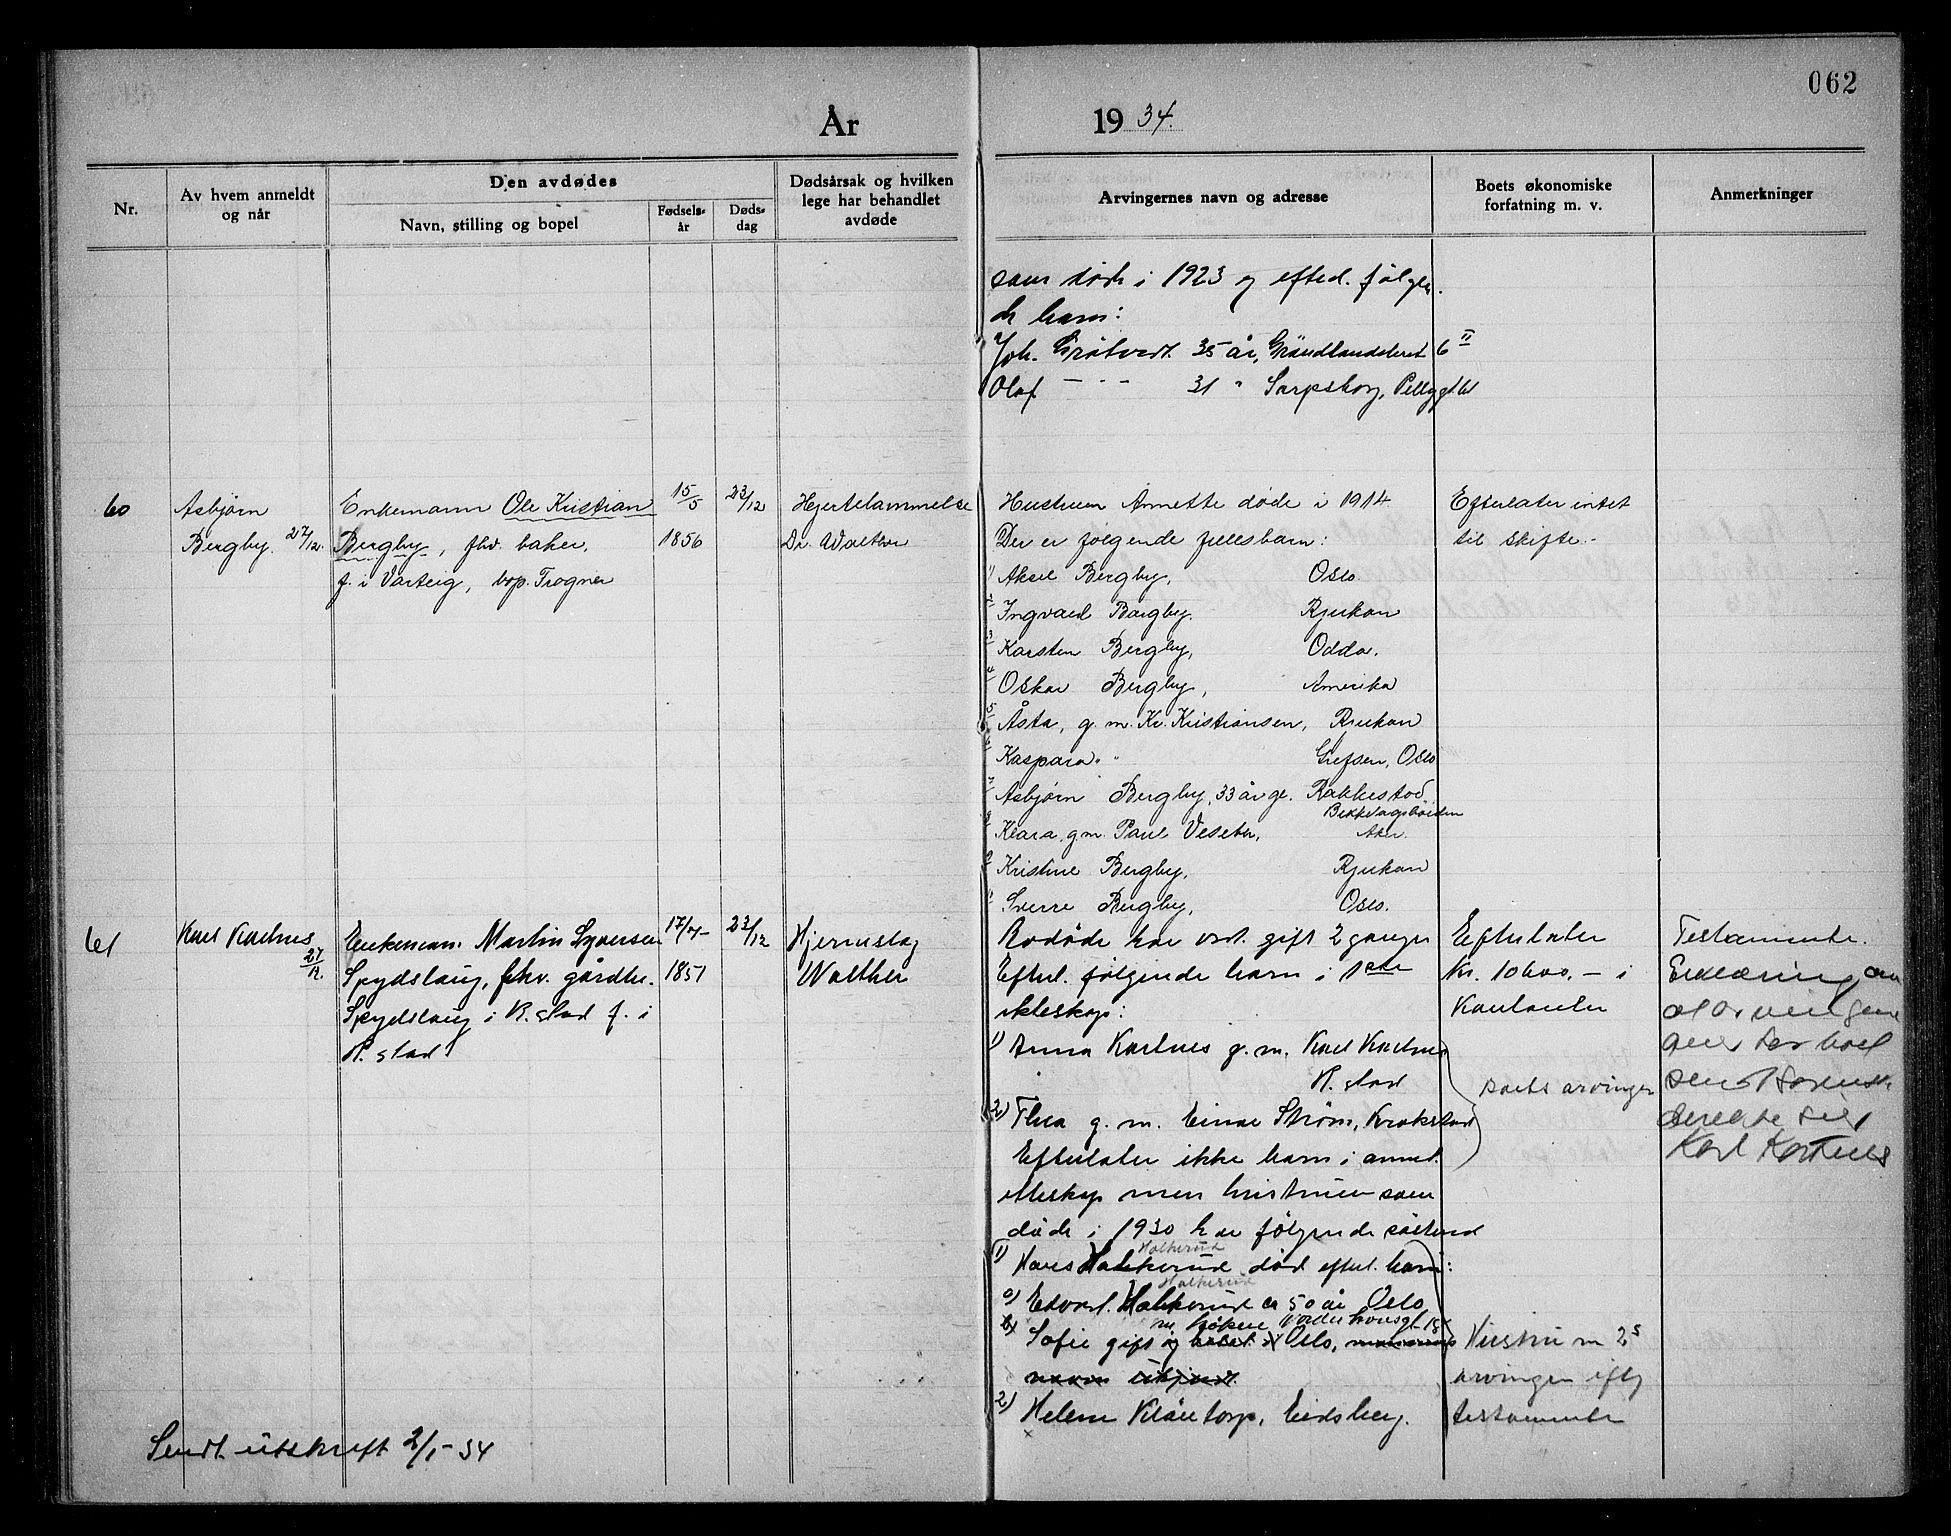 062
År 1934.
Nr.
Av hvem anmeldt
og når
Den avdødes
Navn, stilling og bopel
Fødsels-
år
Døds-
dag
Dødsårsak og hvilken
lege har behandlet
avdøde
Arvingernes navn og adresse
Boets økonomiske
forfatning m. v.
Anmerkninger
som døde i 1923 og efterl. følgen.
de barn:
Joh. Grålvedt 35 år, 6 II
Olaf — " — 31 " Sarpsborg,
60
Asbjørn
Bergby. 27/12.
Enkemann Ole Kristian
Bergby, fhv. baker,
f. i Varteig, bop. Trogner
15/5
1856
23/12
Hjertelammelse
Dr. Walther
Hustruen Annette døde i 1914.
Der er følgende fellesbarn:
1) Aksel Bergby, Oslo.
2 Ingvald Bergby. Rjukan
3 Karsten Bergby, Odda.
4 Oskar Bergby, Amerika
5 Åsta, g. m. Kr. Kristiansen, Rjukan
6 Kaspara " " Grefsen, Oslo
7 Asbjørn Bergby, 33 år g. Rakkestad
8 Klara g.m. Paul Veseter, Bekkelagshøiden Aker.
9 Kristine Bergby, Rjukan
Sverre Bergby, Oslo.
Efterlater intet
til skifte.-
61
Karl Kartnes
27/12.
Enkeman. Martin Syversen
Spydslaug, fhv. gårdbr.
Spydslaug i R.stad f. i
R. stad
17/4-
1851
23/12
Hjerneslag
Walther
Avdøde har vært gift 2 ganger
Efterl. følgende barn i 1ste
ekteskap:
1) Anna Kartnes g. m. Karl Kartnes
R. stad
2) Thea g. m. Einar Strøm, Krokstad
Efterlater ikke barn i annet
ekteskap men hustruen som
døde i 1930 har følgende søskend
Halkerud
1) Hans Halkerud død efterl. barn:
Halkerud
a) Edvard. Halkerud ca 50 år Oslo
b) Sofie gift Oslo,
navn ukjendt.
2) Helene Kløvetorp, Eidsberg.
Efterlater
Kr. 10600,- i
Kontanter
boets arvinger
Hustru m 2s
arvinger iflg
testamente
Testamente.
Erklæring om
at arvingene
boet
direkte til
Karl Kartnes
Sendt utskrift 2/1-34